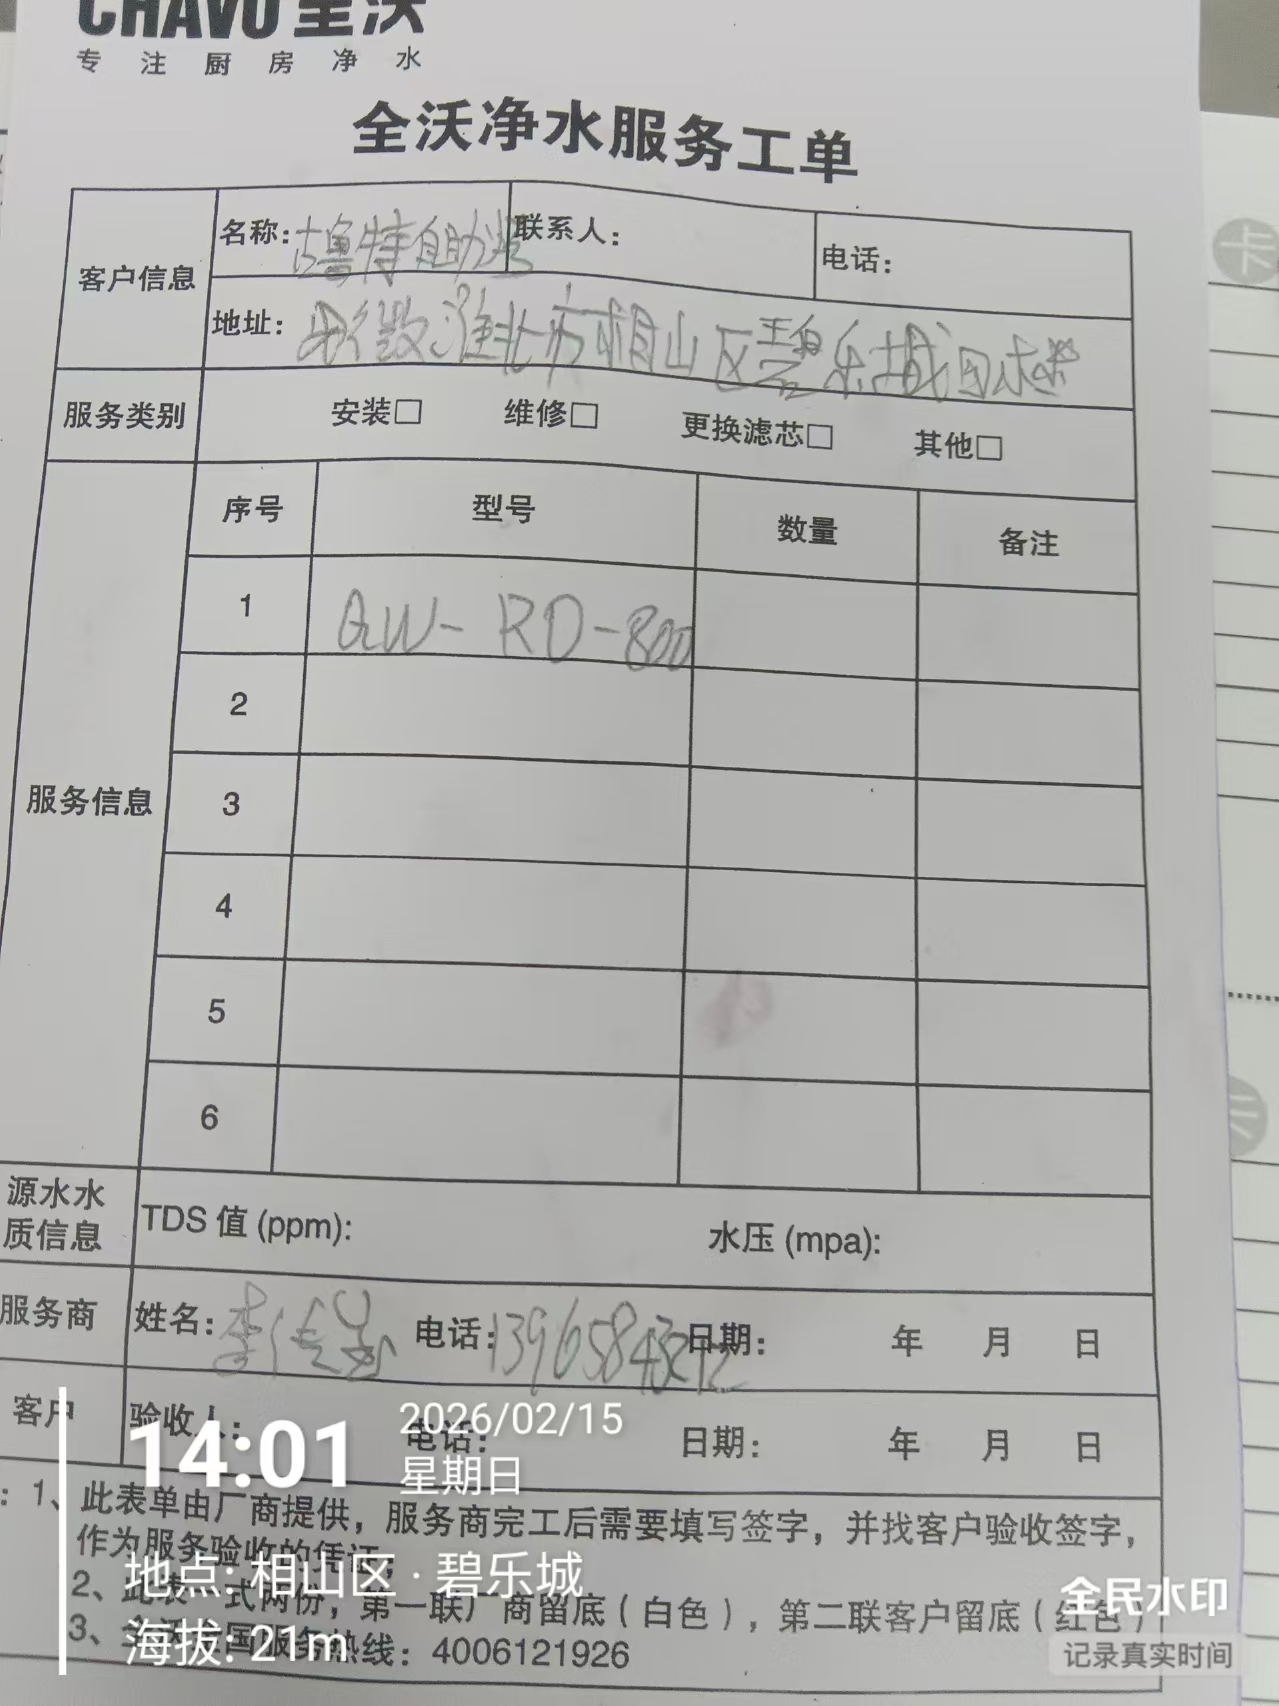 CHAVO 全沃
专注厨房净水
全沃净水服务工单
客户信息
名称: 古鲁特自助烤
联系人:
电话:
地址: 安徽淮北市相山区碧乐城四楼
服务类别
安装□ 维修□ 更换滤芯□ 其他□
服务信息
序号 型号 数量 备注
1 QW-RO-800
2
3
4
5
6
源水水质信息
TDS 值 (ppm): 水压 (mpa):
服务商 姓名: 李 电话: 日期: 年 月 日
客户 验收人: 电话: 日期: 年 月 日
: 1、此表单由厂商提供，服务商完工后需要填写签字，并找客户验收签字，
作为服务验收的凭证，
2、此表一式两份，第一联厂商留底（白色），第二联客户留底（红色）
3、全国服务热线：4006121926
14:01
2026/02/15
星期日
地点: 相山区·碧乐城
海拔: 21m
全民水印
记录真实时间
卡